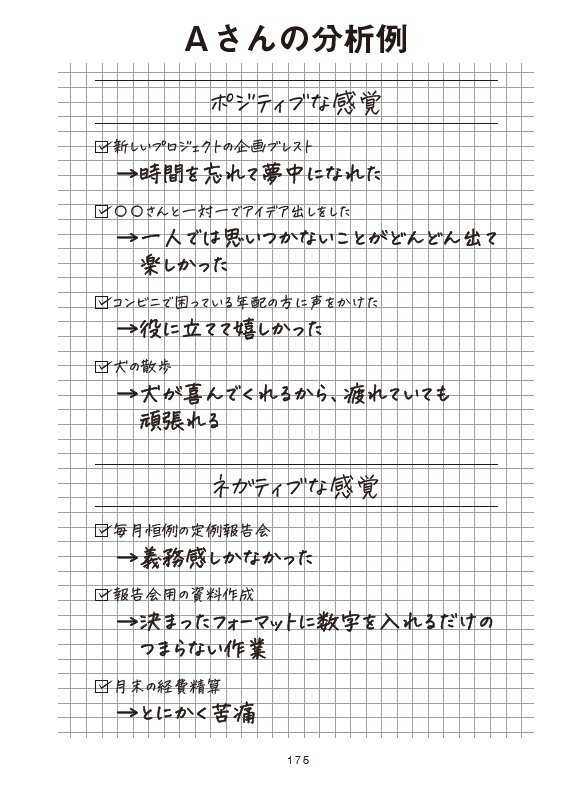 Aさんの分析例
ポジティブな感覚
☑新しいプロジェクトの企画ブレスト
→時間を忘れて夢中になれた
☑〇〇さんと一対一でアイデア出しをした
→一人では思いつかないことがどんどん出て
楽しかった
☑コンビニで困っている年配の方に声をかけた
→役に立てて嬉しかった
☑犬の散歩
→犬が喜んでくれるから、疲れていても
頑張れる
ネガティブな感覚
☑毎月恒例の定例報告会
→義務感しかなかった
☑報告会用の資料作成
→決まったフォーマットに数字を入れるだけの
つまらない作業
☑月末の経費精算
→とにかく苦痛
175